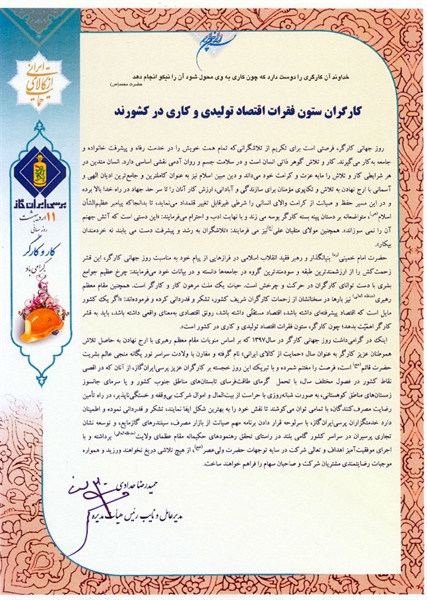 خداوند آن کارگری را دوست دارد که چون کاری به وی محول شود آن را نیکو انجام دهد
حضرت محمد(ص)
کارگران ستون فقرات اقتصاد تولیدی و کاری در کشورند
روز جهانی کارگر، فرصتی است برای تکریم از تلاشگرانی که تمام همت خویش را در خدمت رفاه و پیشرفت خانواده و
جامعه به کار می‌گیرند. کار و تلاش گوهر ذاتی انسان است و در سلامت جسم و روان آدمی نقشی اساسی دارد. انسان متدین در
هر شرایطی کار و تلاش را مایه عزت و کرامت خود می‌داند و دین مبین اسلام نیز به عنوان کاملترین و جامع‌ترین ادیان الهی و
آسمانی با ارج نهادن به تلاش و تکاپوی مؤمنان برای سازندگی و آبادانی، ارزش کار آنان را تا سر حد جهاد در راه خدا بالا برده
و در این مسیر حفظ و صیانت از کرامت والای انسانی را شرطی غیرقابل تغییر قلمداد می‌نماید، تا بدانجا که پیامبر عظیم‌الشأن
اسلام (ص) متواضعانه بر دستان پینه بسته کارگر بوسه می زند و با نهایت ادب و احترام می‌فرمایند: «این دستی است که آتش جهنم
آن را نمی سوزاند». همچنین مولای متقیان علی(ع) نیز می فرمایند: «تلاشگران به رشد و پیشرفت دست می یابند نه خردمندان
بیکار».
حضرت امام خمینی (ره) بنیانگذار و رهبر فقید انقلاب اسلامی در فرازهایی از پیام خود به مناسبت روز جهانی کارگر، این قشر
زحمت‌کش را از ارزشمندترین طبقه و سودمندترین گروه در جامعه‌ها دانسته و در بیانات خود می‌فرمایند: چرخ عظیم جوامع
بشری با دست توانای کارگران در حرکت و چرخش است. حیات یک ملت مرهون کار و کارگر است. همچنین مقام معظم
رهبری (مدظله العالی) نیز بارها در سخنانشان از زحمات کارگران شریف کشور، تشکر و قدردانی کرده و فرموده‌اند: «اگر یک کشور
مایل است که اقتصاد پیشرفته‌ای داشته باشد، اقتصاد مستقلی داشته باشد، رونق اقتصادی به‌معنای واقعی داشته باشد، باید به قشر
کارگر اهمّیّت بدهد؛ چون کارگر، ستون فقرات اقتصاد تولیدی و کاری در کشور است».
اینک در گرامی‌داشت روز جهانی کارگر در سال۱۳۹۷ که بر اساس منویات مقام معظم رهبری با ارج نهادن به حاصل تلاش
هموطنان عزیز کارگر به عنوان سال «حمایت از کالای ایرانی» نام گرفته و مقارن با ولادت سراسر نور یگانه منجی عالم بشریت
حضرت قائم(عج) است، فرصت را مغتنم شمرده و با تبریک این روز خجسته به کارگران عزیز پرسی‌ایران‌گاز، از آنان که در اقصی
نقاط کشور در فصول مختلف سال، با تحمل گرمای طاقت‌فرسای تابستان‌های مناطق جنوب کشور و یا سرمای جانسوز
زمستان‌های مناطق کوهستانی، به صورت شبانه‌روزی با حراست از بیت‌المال و اموال شرکت بی‌وقفه و خستگی‌ناپذیر در راه تأمین
رضایت مصرف‌کنندگان، با تمامی توان می‌کوشند تا نقش خود را به بهترین شکل ایفا نمایند، تشکر و قدردانی نموده و اطمینان
دارد خدمتگزاران پرسی‌ایران‌گاز، با سرلوحه قرار دادن برنامه مهم صیانت از بازار مصرف، سیلندرهای گازمایع، و توسعه نشان
تجاری پرسیران در سراسر کشور گامی بلند در راستای تحقق رهنمودهای حکیمانه مقام عظمای ولایت (مدظله العالی) برداشته و با
اجرای موفقیت‌آمیز اهداف و تعالی شرکت در سایه توجهات حضرت ولی‌عصر(عج)، از هیچ تلاشی دریغ نخواهند ورزید و همواره
موجبات رضایتمندی مشتریان شرکت و صاحبان سهام را فراهم خواهند ساخت.
حمیدرضا حدادی
مدیرعامل و نایب رئیس هیأت مدیره
حمایت از کالای ایرانی
پرسی ایران گاز
۱۱ اردیبهشت
روز جهانی
کار و کارگر
گرامی باد